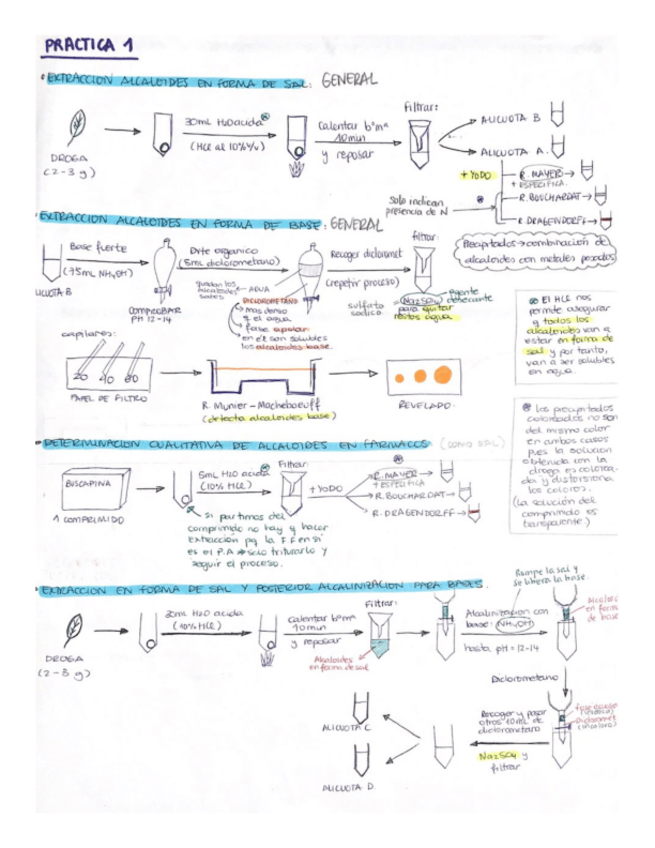 PRACTICA 1
EXTRACCION ALCALOIDES EN FORMA DE SAL: GENERAL
DROGA
(2-3 g)
30mL H2O acida
(HCl al 10% V/V)
Calentar bºmª
10min
y reposar
Filtrar:
ALICUOTA B
ALICUOTA A
+ YODO
Solo indican
presencia de N
R. MAYER
+ ESPECIFICA
R. BOUCHARDAT
R. DRAGENDORFF
Precipitados → combinación de
alcaloides con metales pesados
EXTRACCION ALCALOIDES EN FORMA DE BASE: GENERAL
ALICUOTA B
Base fuerte
(75mL NH4OH)
COMPROBAR
PH 12-14
Dvte organico
(5mL diclorometano)
quedan los
alcaloides
sales
AGUA
DICLOROMETANO
mas denso
q el agua
fase apolar
en él son solubles
los alcaloides base.
Recoger dicloromet
(repetir proceso)
filtrar
Na2SO4
sulfato
sodico
agente
desecante
para quitar
restos agua
El HCl nos
permite asegurar
q todos los
alcaloides van a
estar en forma de
sal y por tanto,
van a ser solubles
en agua.
capilares:
20 40 60
PAPEL DE FILTRO
R. Munier-Macheboeuff
(detecta alcaloides base)
REVELADO.
Los precipitados
coloreados no son
del mismo color
en ambos casos
pues la solucion
obtenida con la
droga es colorea-
da y distorsiona
los colores.
(La solución del
comprimido es
transparente)
DETERMINACION CUALITATIVA DE ALCALOIDES EN FARMACOS (como SAL)
BUSCAPINA
1 COMPRIMIDO
5mL H2O acida
(10% HCl)
Filtrar:
+ YODO
R. MAYER
+ ESPECIFICA
R. BOUCHARDAT
R. DRAGENDORFF
Si partimos del
comprimido no hay q hacer
extracción pq la FF en sí
es el P.A → solo triturarlo y
seguir el proceso.
EXTRACCION EN FORMA DE SAL Y POSTERIOR ALCALINIZACION PARA BASES.
Rompe la sal y
se libera la base.
DROGA
(2-3 g)
30mL H2O acida
(10% HCl)
Calentar bºmª
10min
y reposar
Filtrar:
Alcaloides
en forma de sal
Alcalinización con
base: NH4OH
hasta pH = 12-14
en forma
de base
Diclorometano
Recoger y pasar
otros 10mL de
diclorometano
Na2SO4 y
filtrar
ALICUOTA C
ALICUOTA D